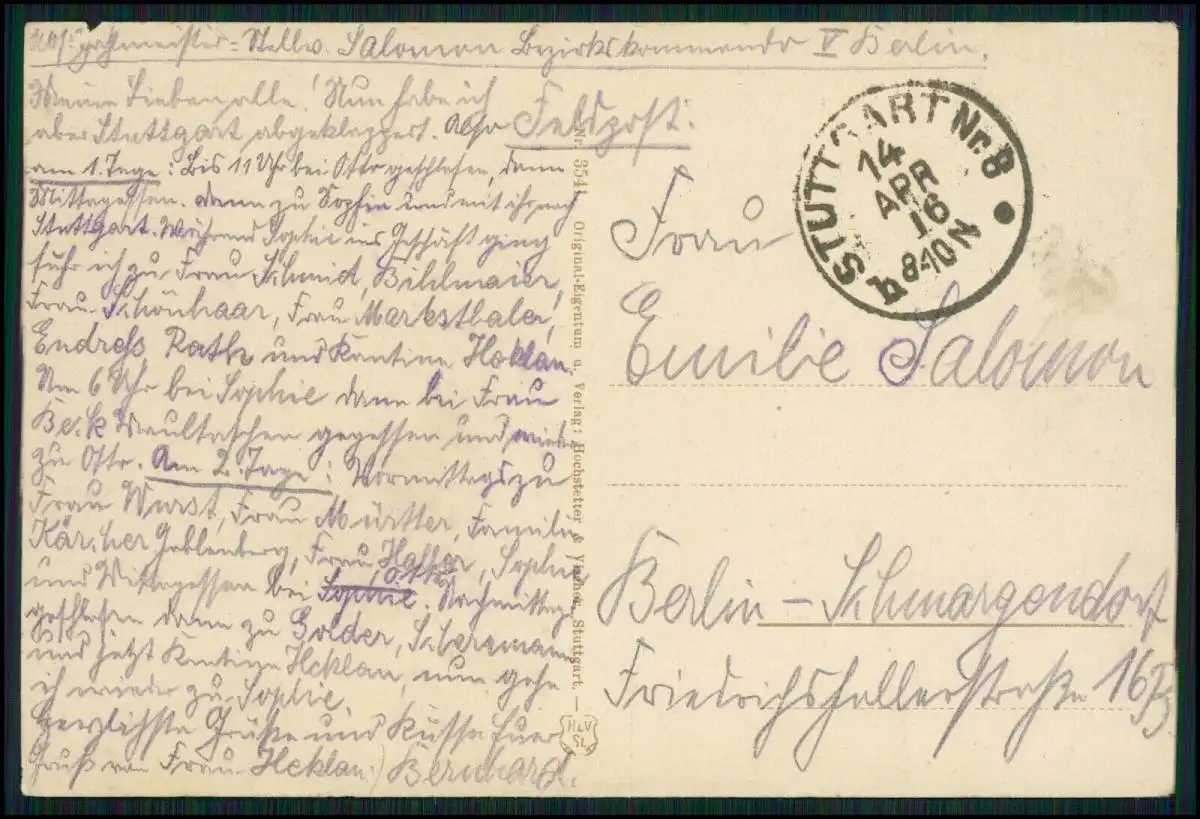 Abs: Zahlmeister-Stellv. Salomon Bezirkskommando V Berlin.
Meine Lieben alle! Nun habe ich
aber Stuttgart abgeklappert. Also
am 1. Tage: Bis 11 Uhr bei Otto geschlafen, dann
Mittagessen. dann zu Sophie und mit ihr nach
Stuttgart. Während Sophie ins Geschäft ging
fuhr ich zu Frau Schmid, Bihlmaier,
Frau Schönhaar, Frau Marksthaler,
Endreß Rath und Kantine Heklan.
Um 6 Uhr bei Sophie dann bei Frau
Beck Maultaschen gegessen und wieder
zu Otto. Am 2. Tage: Vormittags zu
Frau Wurst, Frau Mürtter, Familie
Kärcher Gablenberg, Frau Haller, Sophie
und Mittagessen bei Sophie Otto. Nachmittag
geschlafen dann zu Golder, Scheremann
und jetzt Kantine Heklan, nun gehe
ich wieder zu Sophie.
Herzlichste Grüße und Küsse Euer
Gruß von Frau Heklan) Bernhard.
Nr. 354. Original-Eigentum u. Verlag: Hochstetter & Vischer, Stuttgart.
H&V
St.
Feldpost.
STUTTGART Nr. 8
14
APR
16
8-10N
b
Frau
Emilie Salomon
Berlin - Schmargendorf
Friedrichshallerstraße 16